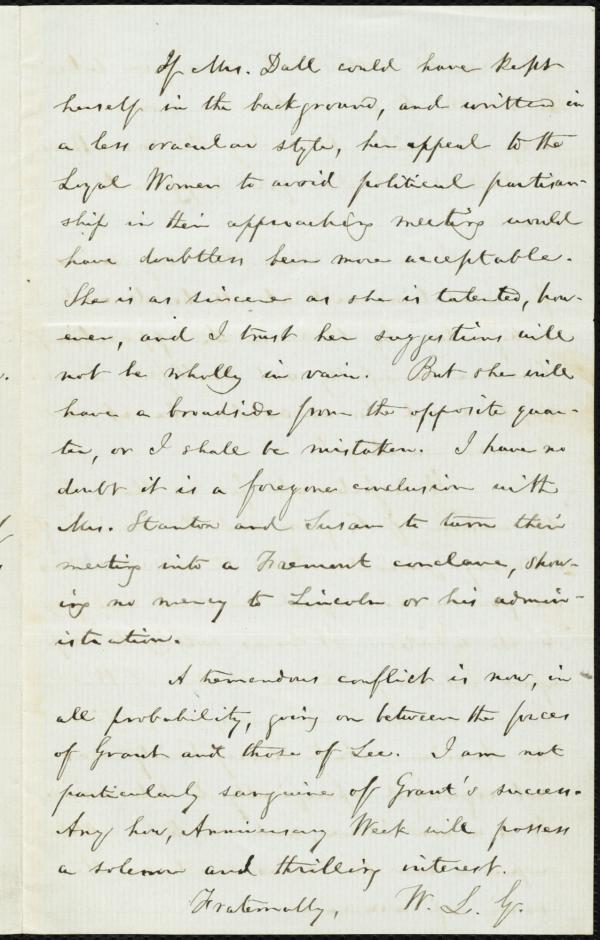 If Mrs. Dall could have kept
herself in the background, and written in
a less oracular style, her appeal to the
Loyal Women to avoid political partisan-
ship in their approaching meeting would
have doubtless been more acceptable.
She is as sincere as she is talented, how-
ever, and I trust her suggestions will
not be wholly in vain. But she will
have a broadside from the opposite quar-
ter, or I shall be mistaken. I have no
doubt it is a foregone conclusion with
Mrs. Stanton and Susan to turn their
meeting into a Fremont conclave, show-
ing no mercy to Lincoln or his admin-
istration.
A tremendous conflict is now, in
all probability, going on between the forces
of Grant and those of Lee. I am not
particularly sanguine of Grant's success.
Any how, Anniversary Week will possess
a solemn and thrilling interest.
Fraternally, W. L. G.